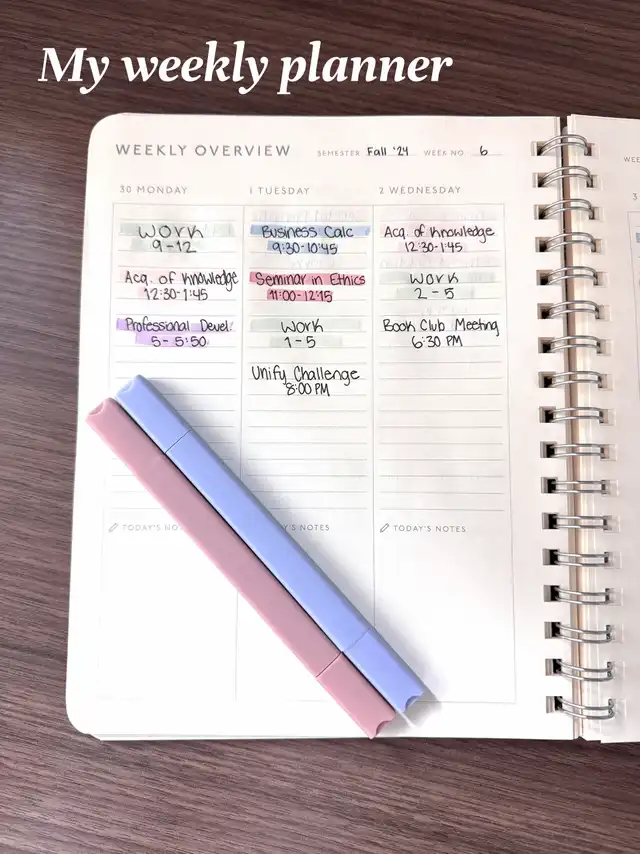 My weekly planner
WEEKLY OVERVIEW SEMESTER Fall '24 WEEK NO. 6
30 MONDAY
WORK
9-12
Acq. of Knowledge
12:30-1:45
Professional Devel.
5-5:50
TODAY'S
1 TUESDAY
Business Calc
9:30-10:45
Seminar in Ethics
11:00-12:15
WORK
1-5
Unify Challenge
8:00 PM
NOTES
2 WEDNESDAY
Acq. of Knowledge
12:30-1:45
WORK
2-5
Book Club Meeting
6:30 PM
TODAY'S NOTES